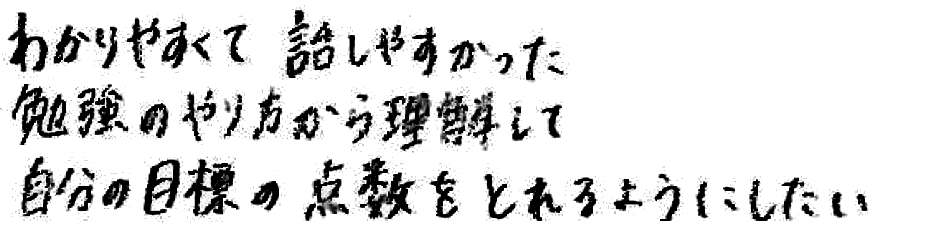 わかりやすくて 話しやすかった
勉強のやり方から理解して
自分の目標の点数をとれるようにしたい